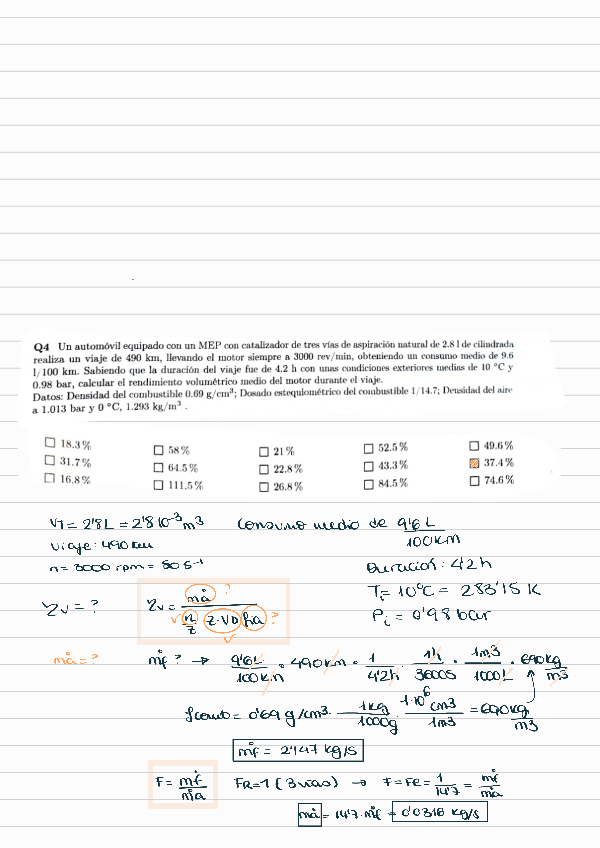 Q4 Un automóvil equipado con un MEP con catalizador de tres vías de aspiración natural de 2.8 l de cilindrada
realiza un viaje de 490 km, llevando el motor siempre a 3000 rev/min, obteniendo un consumo medio de 9.6
l/100 km. Sabiendo que la duración del viaje fue de 4.2 h con unas condiciones exteriores medias de 10 °C y
0.98 bar, calcular el rendimiento volumétrico medio del motor durante el viaje.
Datos: Densidad del combustible 0.69 g/cm³; Dosado estequiométrico del combustible 1/14.7; Densidad del aire
a 1.013 bar y 0 °C, 1.293 kg/m³ .
☐ 18.3 % ☐ 58 % ☐ 21 % ☐ 52.5 % ☐ 49.6 %
☐ 31.7 % ☐ 64.5 % ☐ 22.8 % ☐ 43.3 % ☒ 37.4 %
☐ 16.8 % ☐ 111.5 % ☐ 26.8 % ☐ 84.5 % ☐ 74.6 %
VT = 2'8L = 2'8 10⁻³ m3 Consumo medio de 9'6 L / 100 km
Viaje: 490 km
Duración: 4'2 h
n = 3000 rpm = 50 s⁻¹
T_i = 10°C = 283'15 K
P_i = 0'98 bar
ηv = ? ηv = ṁa ? / n/2 · Z·VD ρa ?
ṁa = ? ṁf ? → 9'6L / 100km · 490 km · 1 / 4'2h · 1h / 3600s · 1m3 / 1000L · 690 kg / m3
ρcomb = 0'69 g/cm³ · 1kg / 1000g · 1·10⁶ cm3 / 1m3 = 690 kg / m3
ṁf = 2'147 kg/s
F = ṁf / ṁa FR=1 (3 vías) → F = Fe = 1 / 14'7 = ṁf / ṁa
ṁa = 14'7 · ṁf = 0'0316 kg/s